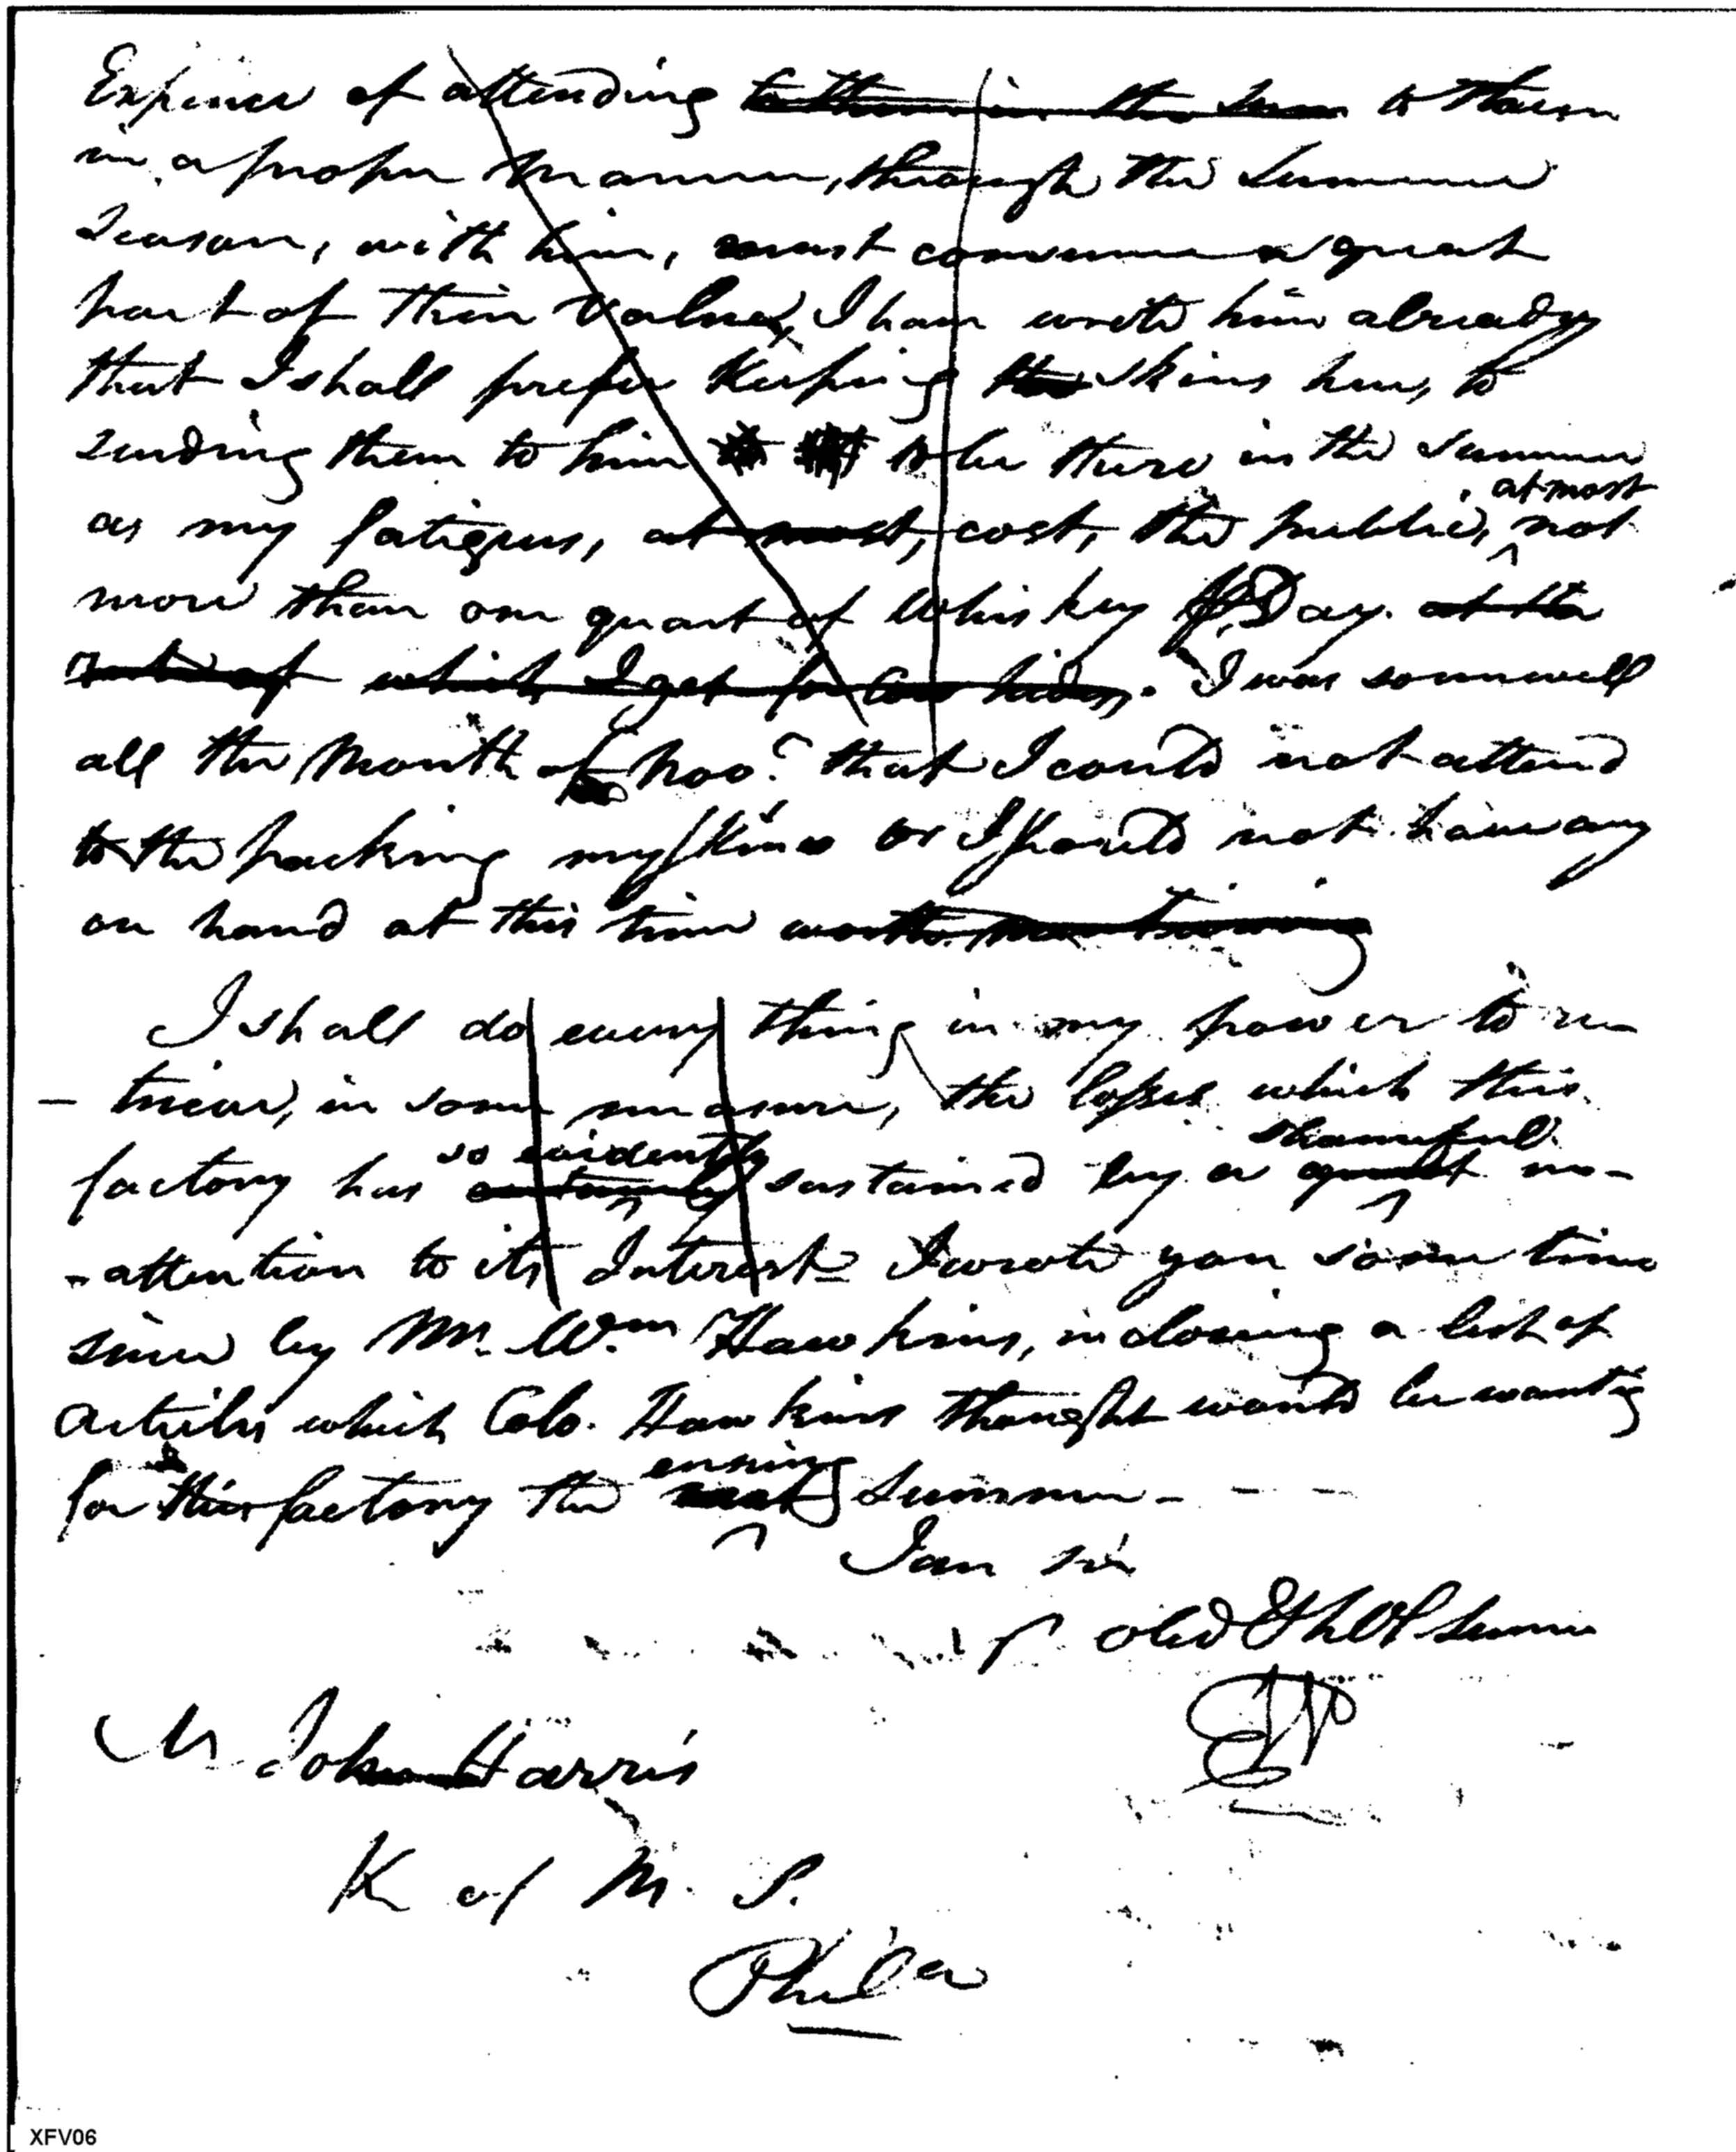 Expence of attending to them in the Sum to them
in a proper manner, through the Summer
Season, with him, must consume a great
part of their value, I have wrote him already
that I shall prefer keeping the skins here, to
sending them to him to be there in the Summer
as my fatigues, at most, cost, the public, at most not
more than one quart of Whiskey Day. at the
rate of which I get for Cow hides. I was so unwell
all the Month of Novr. that I could not attend
to the packing my skins or I should not have any
on hand at this time worth mentioning
I shall do every thing in my power to re-
- trieve, in some measure, the losses which this
factory has so evidently certainly sustained by a shameful great in-
- attention to its Interest - I wrote you some time
since by Mr. Wm Hawkins, inclosing a list of
articles which Colo. Hawkins thought would be wanting
for this factory the ensuing next Summer - - -
I am sir
yr obed Hbl Servn
EP
Mr. John Harris
K of M. S.
Phila
XFV06